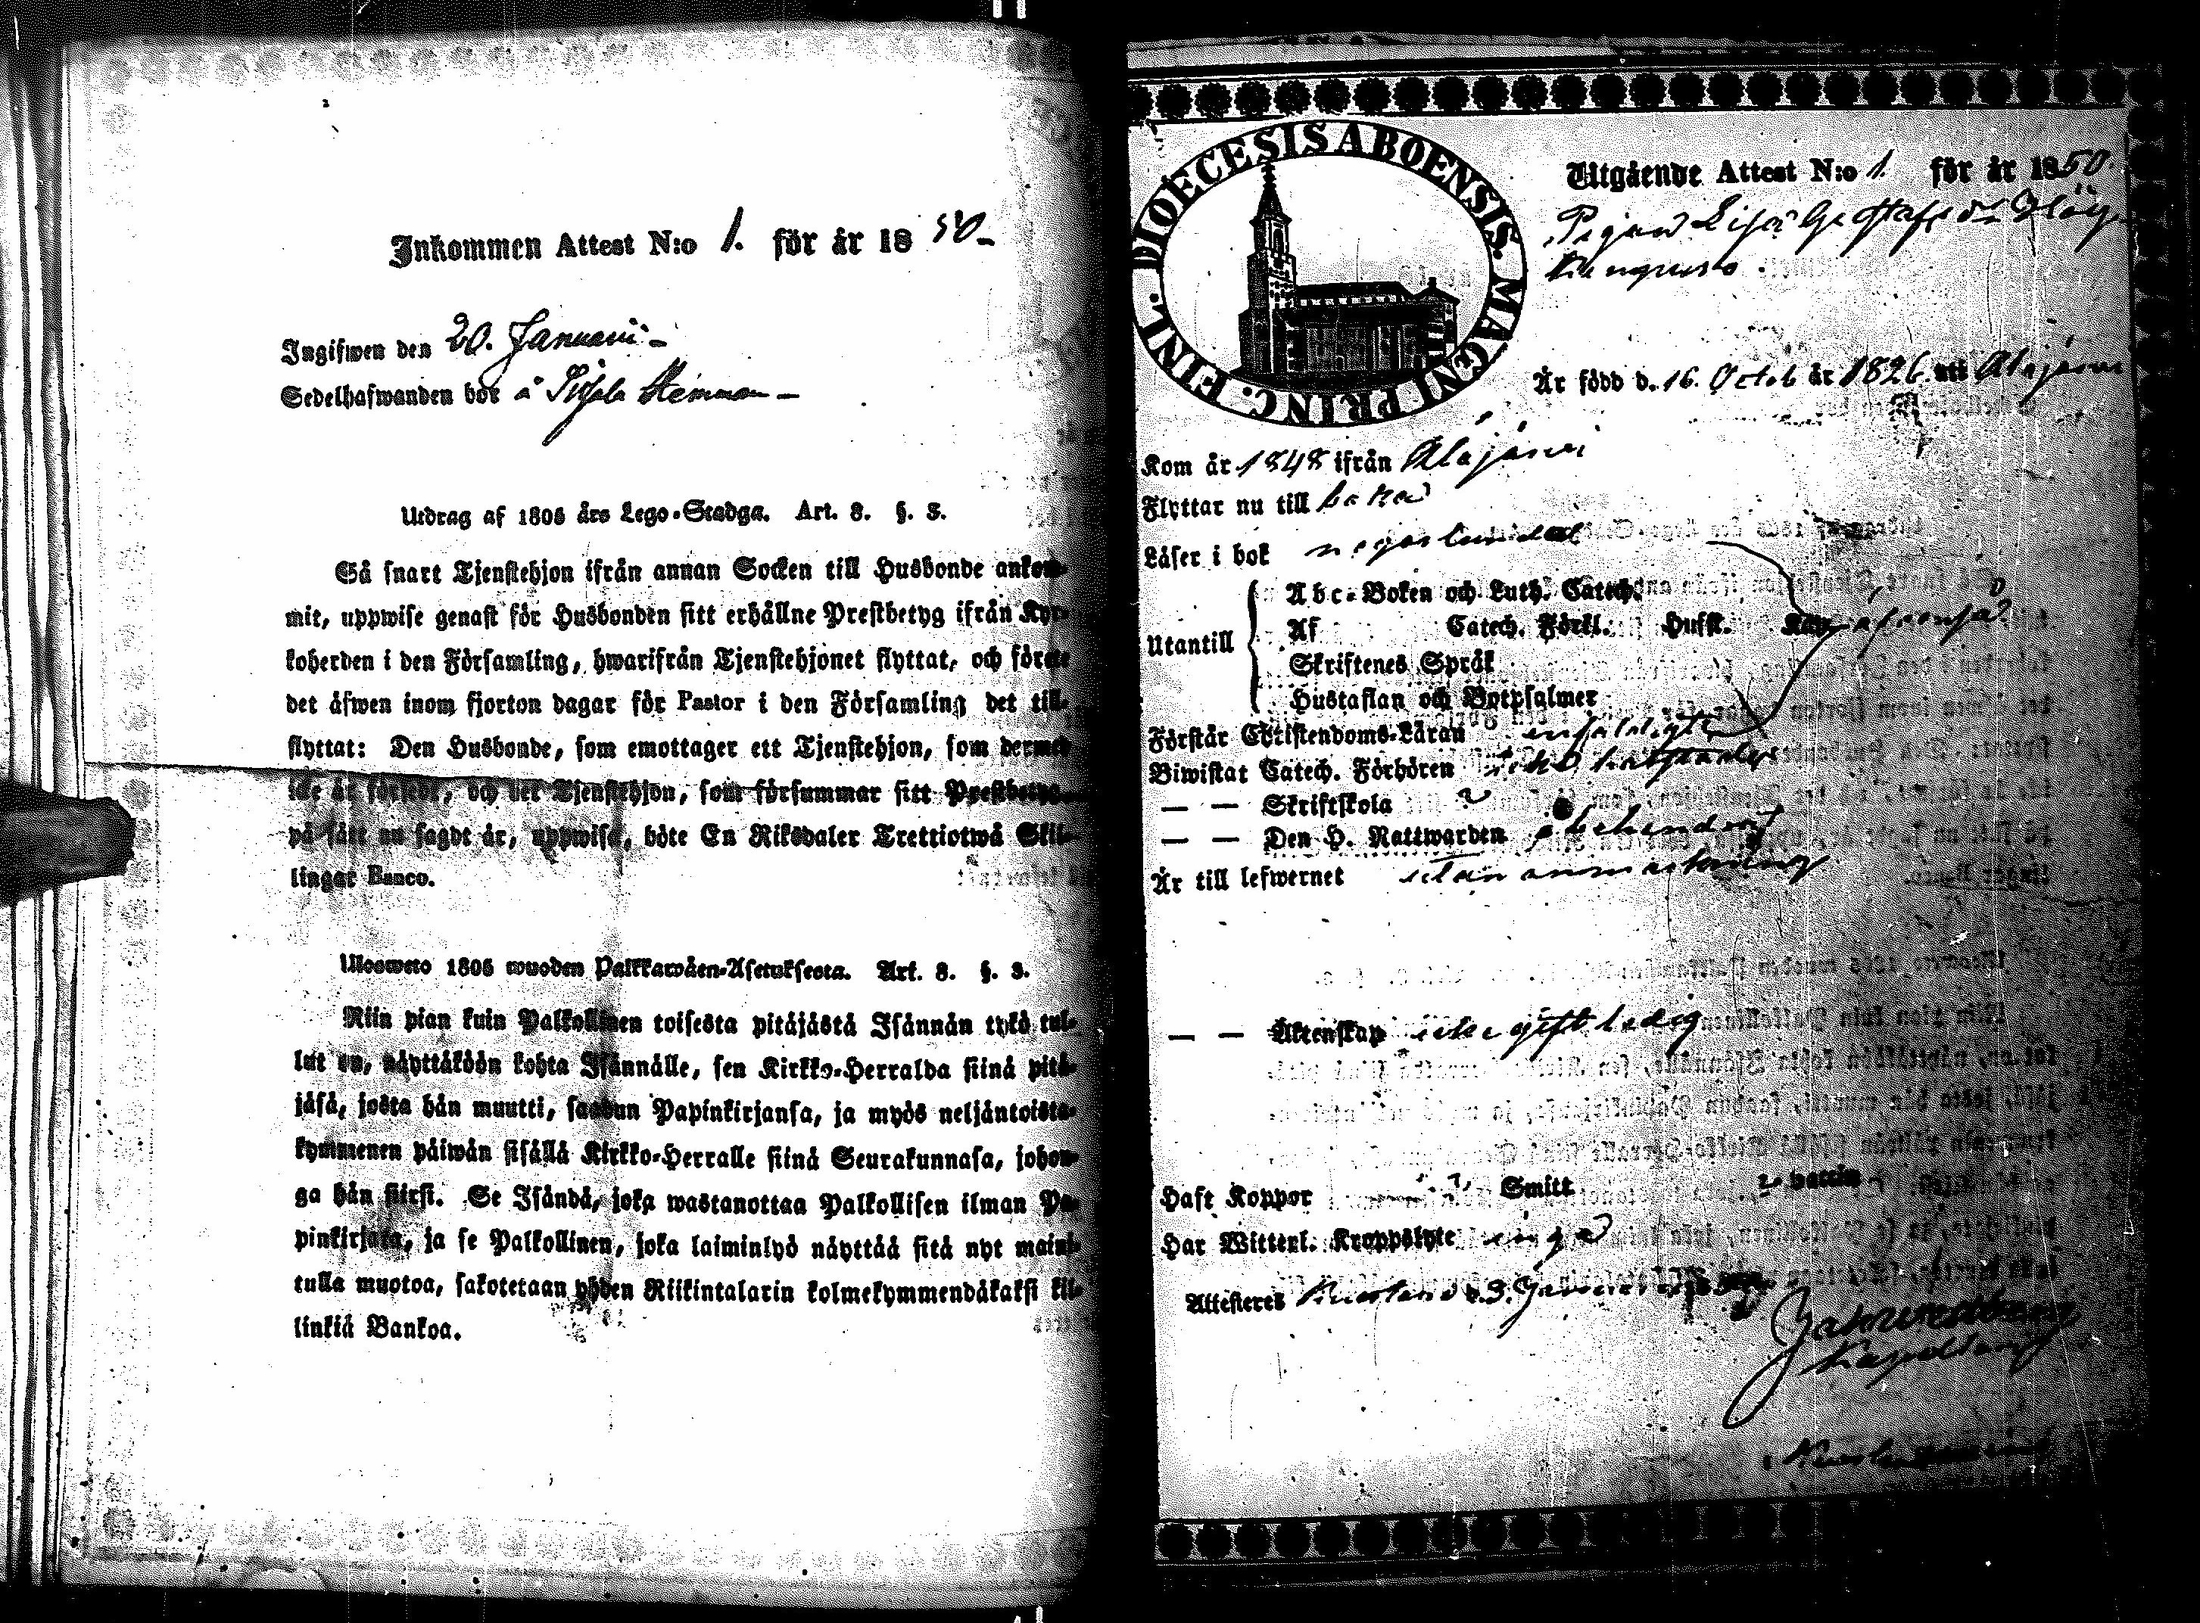 Inkommen Attest N:o 1. för år 1850
Ingifwen den 20. Januarii
Sedelhafwanden bor å Hemman
Utdrag af 1805 års Lego-Stadga. Art. 8. §. 3.
Så snart Tjenstehjon ifrån annan Socken till Husbonde ankom-
mit, uppwise genast för Husbonden sitt erhållne Prestbetyg ifrån Kyr-
koherden i den Församling, hwarifrån Tjenstehjonet flyttat, och förete
det äfwen inom fjorton dagar för Pastor i den Församling det till-
flyttat: Den Husbonde, som emottager ett Tjenstehjon, som dermed
icke är försedt, och det Tjenstehjon, som försummar sitt Prestbetyg,
på sätt nu sagdt är, uppwisa, böte En Riksdaler Trettiotwå Skil-
lingar Banco.
Ulosweto 1805 wuoden Palkkawäen-Asetuksesta. Art. 8. §. 3.
Niin pian kuin Palkollinen toisesta pitäjästä Isännän tykö tul-
lut on, näyttäköön kohta Isännälle, sen Kirkko-Herralda siinä pitä-
jäsä, josta hän muutti, saadun Papinkirjansa, ja myös neljäntoista-
kymmenen päiwän sisällä Kirkko-Herralle siinä Seurakunnasa, johon-
ga hän siirsi. Se Isändä, joka wastanottaa Palkollisen ilman Pa-
pinkirjata, ja se Palkollinen, joka laiminlyö näyttää sitä nyt maini-
tulla muotoa, sakotetaan yhden Riikintalarin kolmekymmendäkaksi kil-
linkiä Bankoa.
DIOECESIS ABOENSIS. MAGNI PRINC. FINL.
Utgående Attest N:o 1. för år 1850.
Pigan Lisa Gustafs dr
Är född d. 16. Octob år 1826. uti Alajärvi
Kom år 1848 ifrån Alajärvi
Flyttar nu till baka
Läser i bok någorlunda
Utantill
Abc-Boken och Luth. Catech.
Af Catech. Förkl. Hufst.
Skriftenes Språk
Hustaflan och Botpsalmer
Förstår Christendoms-Läran enfaldigt
Biwistat Catech. Förhören
— — Skriftskola
— — Den H. Nattwarden obehindrad
Är till lefwernet utan anmärkning
— — Äktenskap icke gift ledig
Haft Koppor Smitt
Har Witterl. Kroppslyte inga
Attesteres
Kapellan